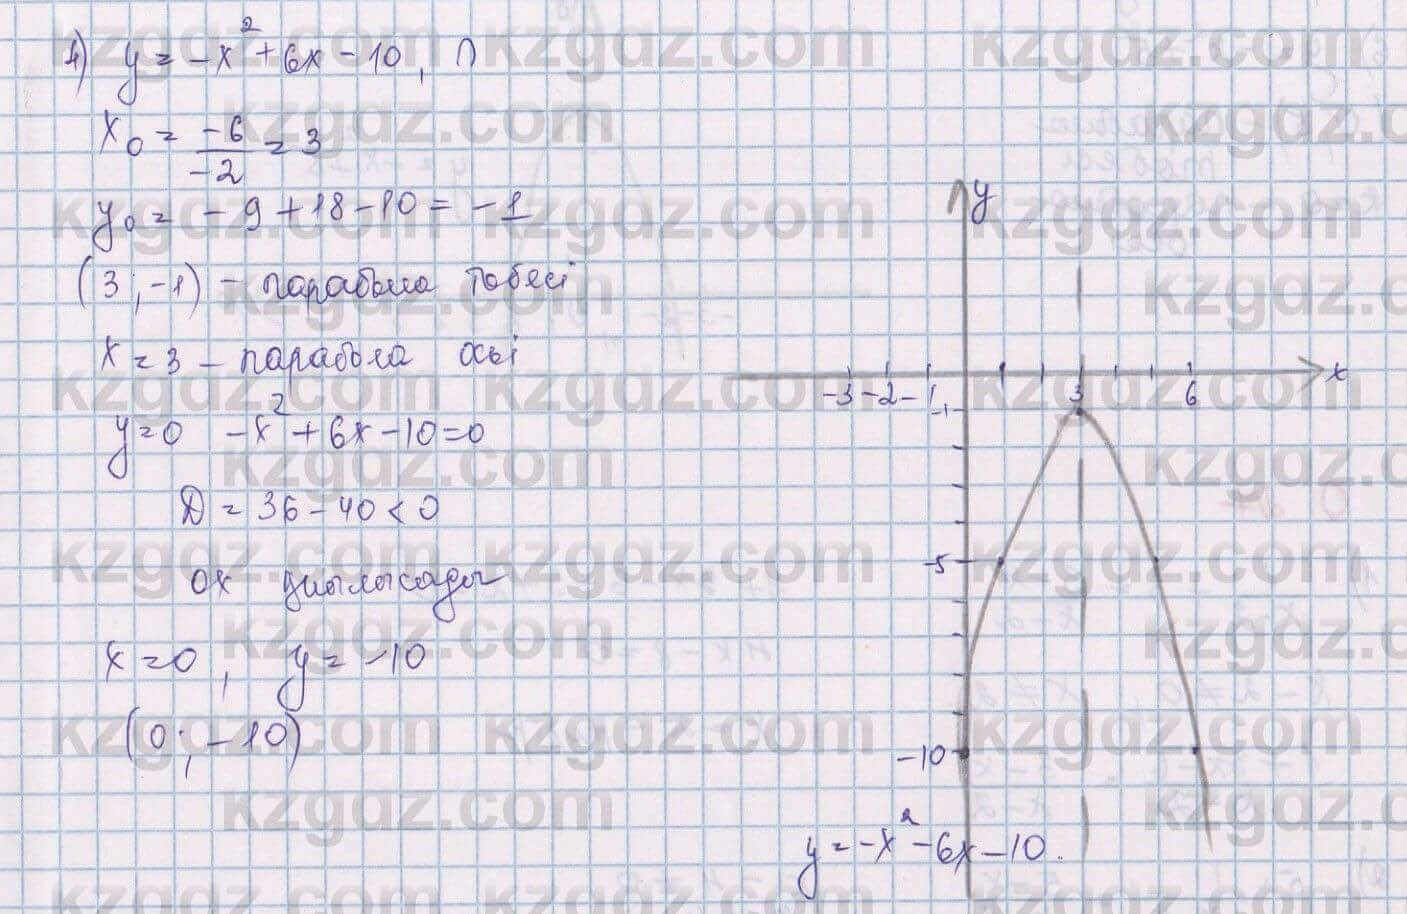 4) y = -x² + 6x - 10, ∩
x₀ = -6/-2 = 3
y₀ = -9 + 18 - 10 = -1
(3; -1) - парабола төбесі
x = 3 - парабола осі
y = 0 -x² + 6x - 10 = 0
D = 36 - 40 < 0
ox
x = 0, y = -10
(0; -10)
y
-3 -2 -1 3 6 x
-1
-5
-10
y = -x² - 6x - 10.
kzgdz.com